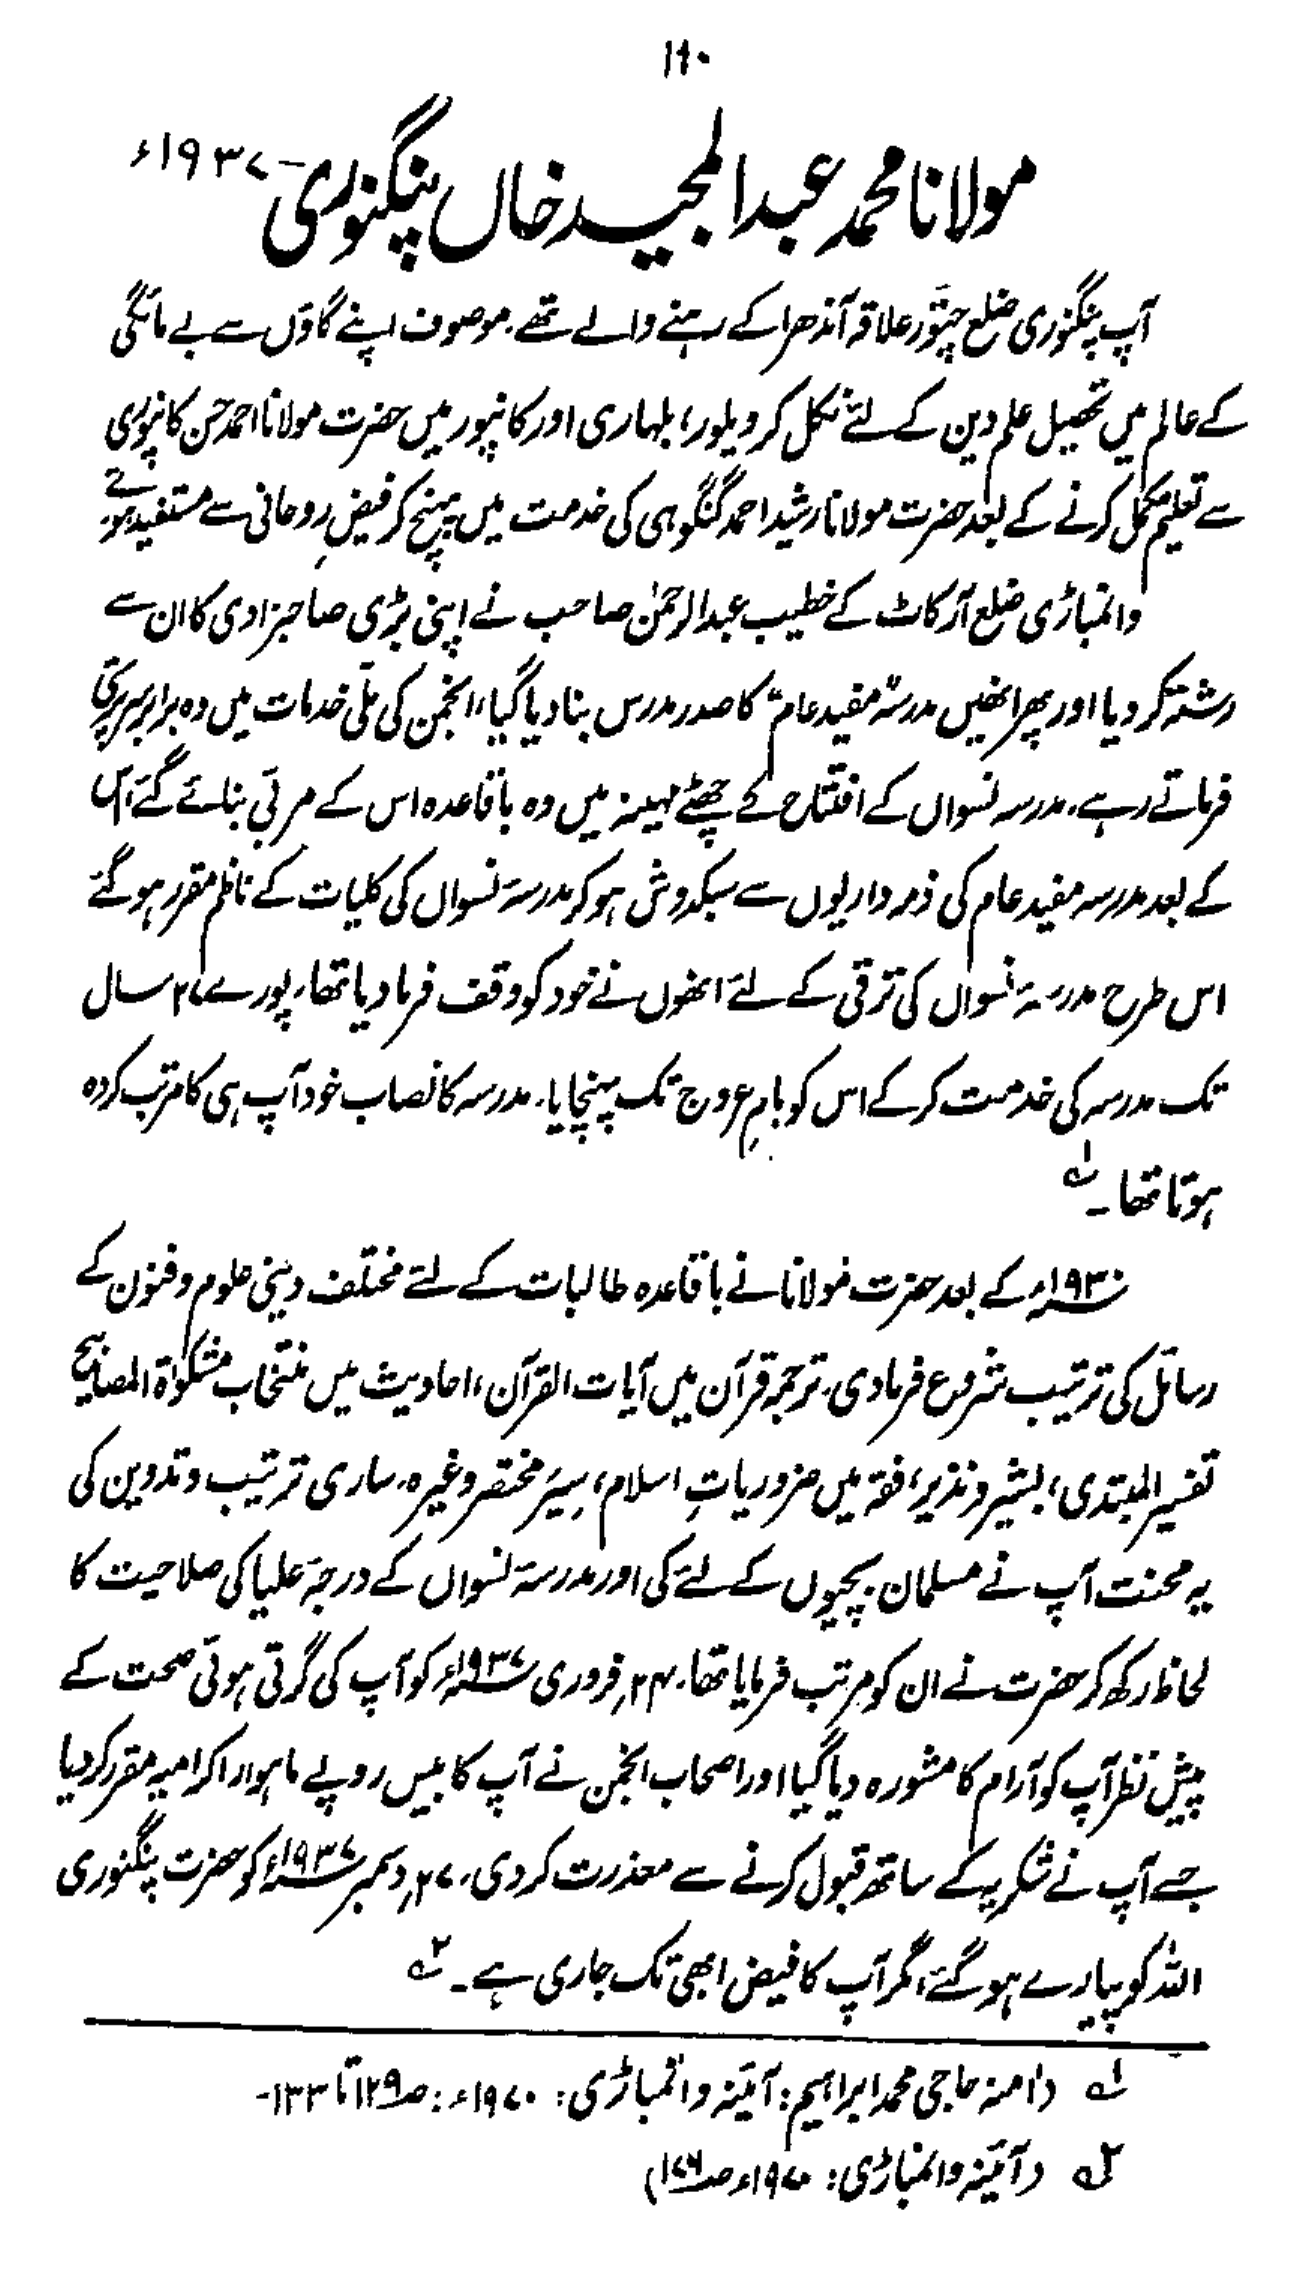 ۱۹۰
مولانا محمد عبدالمجید خاں پنگنوری -۱۹۳۷ء
آپ پنگنوری ضلع چتّور علاقہ آندھرا کے رہنے والے تھے۔ موصوف اپنے گاؤں سے بے مائگی
کے عالم میں تحصیل علم دین کے لئے نکل کر ویلور، بلہاری اور کانپور میں حضرت مولانا احمد حسن کانپوری
سے تعلیم مکمل کرنے کے بعد حضرت مولانا رشید احمد گنگوہی کی خدمت میں پہنچ کر فیضِ روحانی سے مستفید ہوئے
وانمباڑی ضلع آرکاٹ کے خطیب عبدالرحمٰن صاحب نے اپنی بڑی صاحبزادی کا ان سے
رشتہ کر دیا اور پھر انھیں مدرسہ "مفید عام" کا صدر مدرس بنا دیا گیا، انجمن کی ملّی خدمات میں وہ برابر سرپرستی
فرماتے رہے۔ مدرسہ نسواں کے افتتاح کے چھٹے مہینہ میں وہ باقاعدہ اس کے مربّی بنائے گئے، اس
کے بعد مدرسہ مفید عام کی ذمہ داریوں سے سبکدوش ہو کر مدرسۂ نسواں کی کلیات کے ناظم مقرر ہو گئے
اس طرح مدرسۂ نسواں کی ترقی کے لئے انھوں نے خود کو وقف فرما دیا تھا، پورے ۲۷ سال
تک مدرسہ کی خدمت کر کے اس کو بامِ عروج تک پہنچایا۔ مدرسہ کا نصاب خود آپ ہی کا مرتب کردہ
ہوتا تھا۔ ؎۱
۱۹۳۰ء کے بعد حضرت مولانا نے باقاعدہ طالبات کے لئے مختلف دینی علوم و فنون کے
رسائل کی ترتیب شروع فرما دی۔ ترجمۂ قرآن میں آیات القرآن، احادیث میں منتخاب مشکوٰۃ المصابیح
تفسیر المبتدی، بشیر و نذیر، فقہ میں ضروریاتِ اسلام، سِیَر مختصر وغیرہ۔ ساری ترتیب و تدوین کی
یہ محنت آپ نے مسلمان بچیوں کے لئے کی اور مدرسۂ نسواں کے درجۂ علیا کی صلاحیت کا
لحاظ رکھ کر حضرت نے ان کو مرتب فرمایا تھا۔ ۲۴؍ فروری ۱۹۳۷ء کو آپ کی گرتی ہوئی صحت کے
پیش نظر آپ کو آرام کا مشورہ دیا گیا اور اصحاب انجمن نے آپ کا بیس روپے ماہوار اکرامیہ مقرر کر دیا
جسے آپ نے شکریہ کے ساتھ قبول کرنے سے معذرت کر دی۔ ۲۷؍ دسمبر ۱۹۳۷ء کو حضرت پنگنوری
اللہ کو پیارے ہو گئے، مگر آپ کا فیض ابھی تک جاری ہے۔ ؎۲
؎۱ حاجی محمد ابراہیم: آئینہ وانمباڑی: ۱۹۷۰ء: صـ ۱۲۹ تا ۱۳۳-
؎۲ (آئینہ وانمباڑی: ۱۹۷۰ء صـ ۱۷۶)